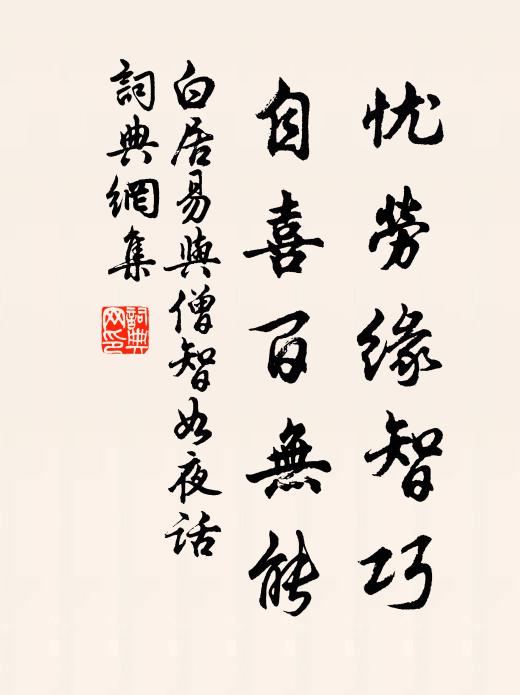 忧勞緣智巧
自喜百無能
白居易與僧智如夜話
詞典網集
詞典网印